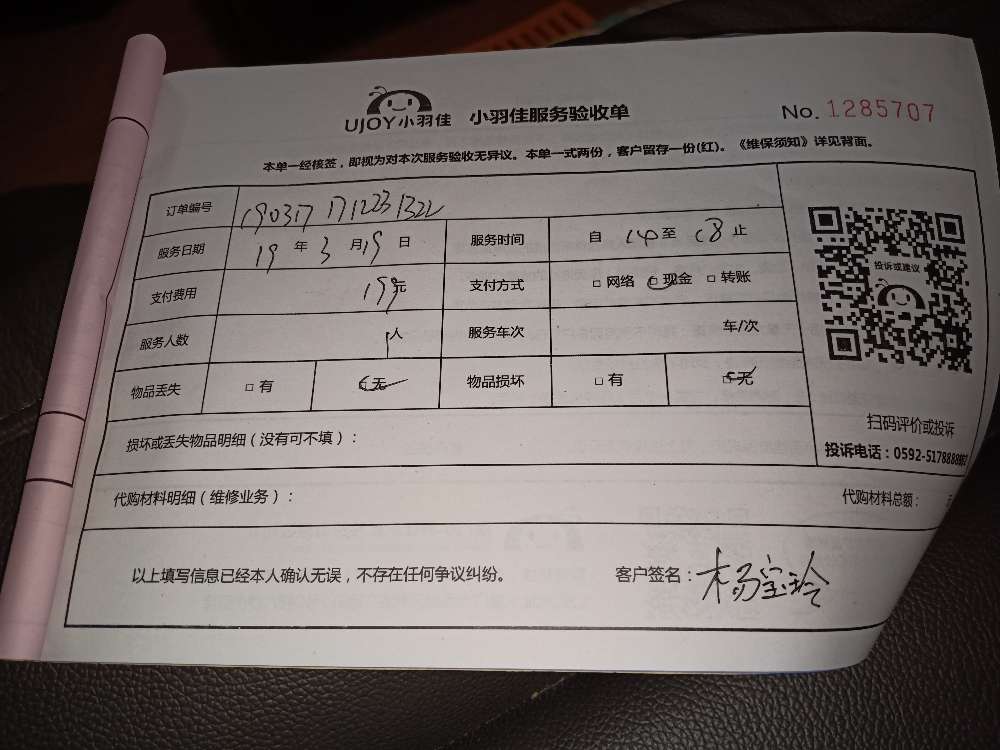 UJOY小羽佳 小羽佳服务验收单 No. 1285707
本单一经核签，即视为对本次服务验收无异议。本单一式两份，客户留存一份(红)。《维保须知》详见背面。
订单编号 1903171712231322
服务日期 19 年 3 月 19 日 服务时间 自 14 至 18 止
支付费用 199元 支付方式 □ 网络 □ 现金 □ 转账
服务人数 1人 服务车次 车/次
物品丢失 □ 有 □ 无 物品损坏 □ 有 □ 无
投诉或建议
扫码评价或投诉
投诉电话：0592-5178888
损坏或丢失物品明细（没有可不填）：
代购材料明细（维修业务）： 代购材料总额：
以上填写信息已经本人确认无误，不存在任何争议纠纷。 客户签名：杨宝玲